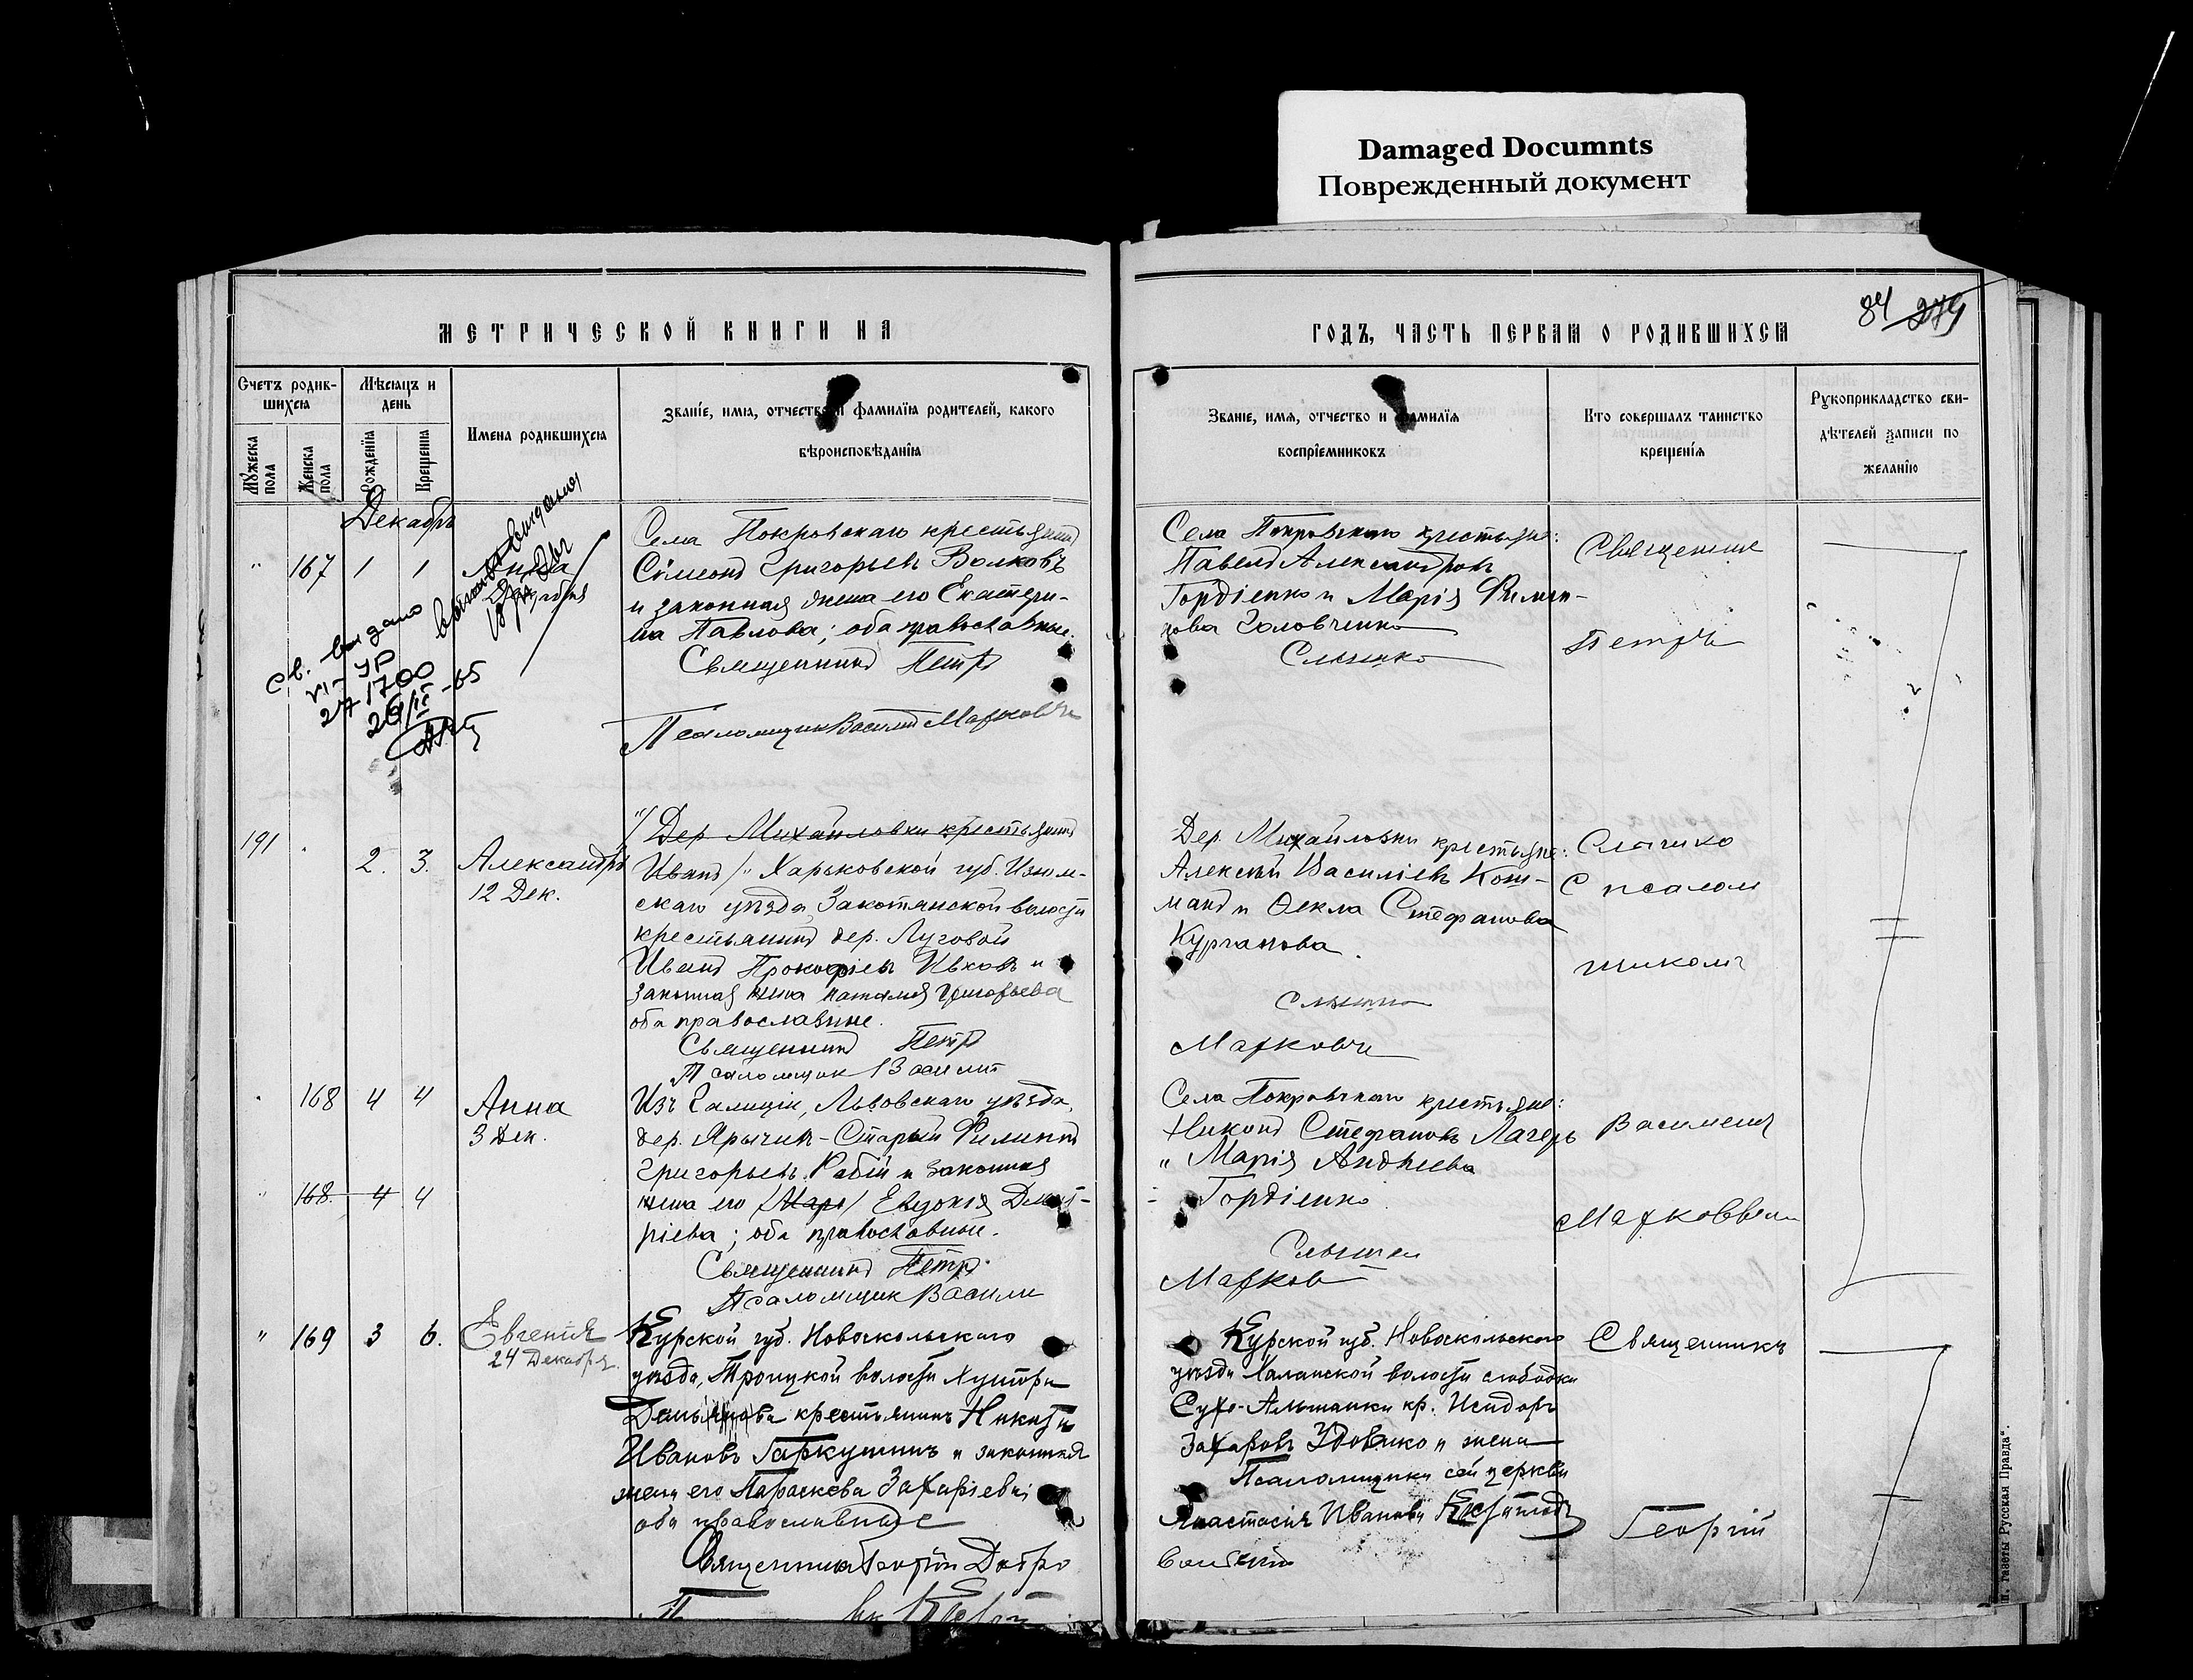 Damaged Documnts
Поврежденный документ
84 279
МЕТРИЧЕСКОЙ КНИГИ НА
ГОДЪ, ЧАСТЬ ПЕРВАЯ О РОДИВШИХСЯ
Счетъ родив-
шихся
Мѣсяцъ и
день
Мужеска
пола
Женска
пола
Рожденія
Крещенія
Имена родившихся
Званіе, имя, отчество и фамилія родителей, какого
вѣроисповѣданія
Званіе, имя, отчество и фамилія
воспріемниковъ
Кто совершалъ таинство
крещенія
Рукоприкладство сви-
дѣтелей записи по
желанію
Декабрь
" 167 1 1
Декабря
св. выдано
УР
1700
-65
Села Покровскаго крестьянинъ
Сѵмеонъ Григорьевъ Волковъ
и законная жена его Екатери-
на Павлова; оба православные.
Священникъ Петръ
Псаломщик Василій Марковъ
Села Покровскаго крестьяне:
Павелъ Александровъ
Гордіенко и Марія Филип-
пова Головченко
Священник
Петръ
191 2. 3. Александръ
12 Дек.
Дер Михайловки крестьянинъ
Иванъ / Харьковской губ. Изюм-
скаго уѣзда, волости
крестьянинъ дер. Луговой
Иванъ Прокофіевъ Ивковъ и
законная жена Наталія Григорьева
оба православные.
Священникъ Петръ
Псаломщик Васили
Дер. Михайловки крестьяне:
Алексѣй Василіевъ Кош-
манъ и Ѳекла Стефанова
Курганова.
Марковъ
с псалом
щиком
168 4 4 Анна
3 Дек.
Изъ Галиціи, Львовскаго уѣзда,
дер. Ярычин-Старый Филиппъ
Григорьевъ Рабій и законная
" 168. 4 4
жена его /Мар/ Евдокія Дмит-
ріева; оба православные.
Священникъ Петръ
Псаломщик Васили
Села Покровскаго крестьяне:
Никонъ Стефановъ Лагерь
" Марія Андреева
Гордіенко
Марков
Василием
Марковым
" 169 3 6. Евгенія
24 Декабря.
Курской губ. Новооскольскаго
уѣзда, Троицкой волости Хутора
Демьянова крестьянинъ Никита
Ивановъ Гаркушинъ и законная
жена его Параскева Захаріева
оба православные
Священникъ Георгій Добро
Курской губ. Новооскольскаго
уѣзда Халанской волости слободки
кр. Исидоръ
Захаровъ Удовико и жена
Псаломщика сей церкви
Анастасія Иванова
Священникъ
Георгій
п. газеты Русская Правда".